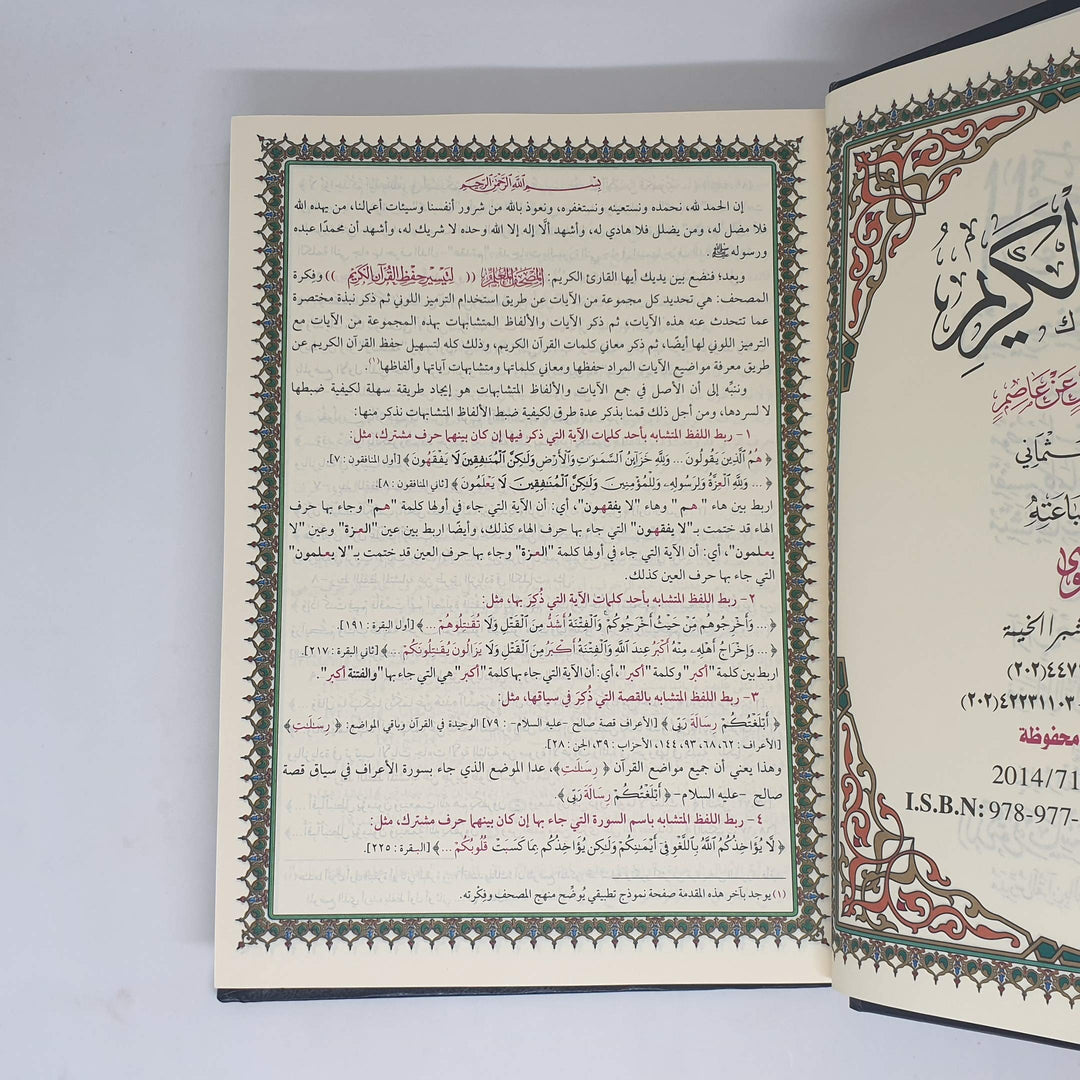 الكريم
ك
عن عاصم
باعته
شبرا الخيمة
(٢٠٢)٤٤٧
(٢٠٢)٤٢٢٣١١٠٣
محفوظة
2014/71
I.S.B.N: 978-977-
بسم الله الرحمن الرحيم
إن الحمد لله، نحمده ونستعينه ونستغفره، ونعوذ بالله من شرور أنفسنا وسيئات أعمالنا، من يهده الله
فلا مضل له، ومن يضلل فلا هادي له، وأشهد ألَّا إله إلا الله وحده لا شريك له، وأشهد أن محمدًا عبده
ورسوله ﷺ.
وبعد؛ فنضع بين يديك أيها القارئ الكريم: المصحف المعلم (( لتيسير حفظ القرآن الكريم )) وفكرة
المصحف: هي تحديد كل مجموعة من الآيات عن طريق استخدام الترميز اللوني ثم ذكر نبذة مختصرة
عما تتحدث عنه هذه الآيات، ثم ذكر الآيات والألفاظ المتشابهات بهذه المجموعة من الآيات مع
الترميز اللوني لها أيضًا، ثم ذكر معاني كلمات القرآن الكريم، وذلك كله لتسهيل حفظ القرآن الكريم عن
طريق معرفة مواضيع الآيات المراد حفظها ومعاني كلماتها ومتشابهات آياتها وألفاظها(١).
وننبِّه إلى أن الأصل في جمع الآيات والألفاظ المتشابهات هو إيجاد طريقة سهلة لكيفية ضبطها
لا لسردها، ومن أجل ذلك قمنا بذكر عدة طرق لكيفية ضبط الألفاظ المتشابهات نذكر منها:
١- ربط اللفظ المتشابه بأحد كلمات الآية التي ذكر فيها إن كان بينهما حرف مشترك، مثل:
﴿ هُمُ الَّذِينَ يَقُولُونَ ... وَلِلَّهِ خَزَآئِنُ السَّمَـٰوَٰتِ وَالْأَرْضِ وَلَـٰكِنَّ الْمُنَـٰفِقِينَ لَا يَفْقَهُونَ ﴾ [أول المنافقون : ٧].
﴿ ... وَلِلَّهِ الْعِزَّةُ وَلِرَسُولِهِۦ وَلِلْمُؤْمِنِينَ وَلَـٰكِنَّ الْمُنَـٰفِقِينَ لَا يَعْلَمُونَ ﴾ [ثاني المنافقون : ٨].
اربط بين هاء "هم" وهاء "لا يفقهون"، أي: أن الآية التي جاء في أولها كلمة "هم" وجاء بها حرف
الهاء قد ختمت بـ"لا يفقهون" التي جاء بها حرف الهاء كذلك، وأيضًا اربط بين عين "العزة" وعين "لا
يعلمون"، أي: أن الآية التي جاء في أولها كلمة "العزة" وجاء بها حرف العين قد ختمت بـ"لا يعلمون"
التي جاء بها حرف العين كذلك.
٢- ربط اللفظ المتشابه بأحد كلمات الآية التي ذُكِرَ بها، مثل:
﴿ ... وَأَخْرِجُوهُم مِّنْ حَيْثُ أَخْرَجُوكُمْ ۚ وَالْفِتْنَةُ أَشَدُّ مِنَ الْقَتْلِ وَلَا تُقَـٰتِلُوهُمْ ... ﴾ [أول البقرة : ١٩١].
﴿ ... وَإِخْرَاجُ أَهْلِهِۦ مِنْهُ أَكْبَرُ عِندَ اللَّهِ وَالْفِتْنَةُ أَكْبَرُ مِنَ الْقَتْلِ وَلَا يَزَالُونَ يُقَـٰتِلُونَكُمْ ... ﴾ [ثاني البقرة : ٢١٧].
اربط بين كلمة "أكبر" وكلمة "أكبر"، أي: أن الآية التي جاء بها كلمة "أكبر" هي التي جاء بها "والفتنة أكبر".
٣- ربط اللفظ المتشابه بالقصة التي ذُكِرَ في سياقها، مثل:
﴿ أَبْلَغْتُكُمْ رِسَالَةَ رَبِّى ﴾ [الأعراف قصة صالح -عليه السلام- : ٧٩] الوحيدة في القرآن وباقي المواضع: ﴿ رِسَـٰلَـٰتِ ﴾
[الأعراف : ٦٢، ٦٨، ٩٣، ١٤٤، الأحزاب : ٣٩، الجن : ٢٨].
وهذا يعني أن جميع مواضع القرآن ﴿ رِسَـٰلَـٰتِ ﴾، عدا الموضع الذي جاء بسورة الأعراف في سياق قصة
صالح -عليه السلام- ﴿ أَبْلَغْتُكُمْ رِسَالَةَ رَبِّى ﴾.
٤- ربط اللفظ المتشابه باسم السورة التي جاء بها إن كان بينهما حرف مشترك، مثل:
﴿ لَّا يُؤَاخِذُكُمُ اللَّهُ بِاللَّغْوِ فِىٓ أَيْمَـٰنِكُمْ وَلَـٰكِن يُؤَاخِذُكُم بِمَا كَسَبَتْ قُلُوبُكُمْ ... ﴾ [البقرة : ٢٢٥].
(١) يوجد بآخر هذه المقدمة صفحة نموذج تطبيقي يُوضِّح منهج المصحف وفِكْرته.